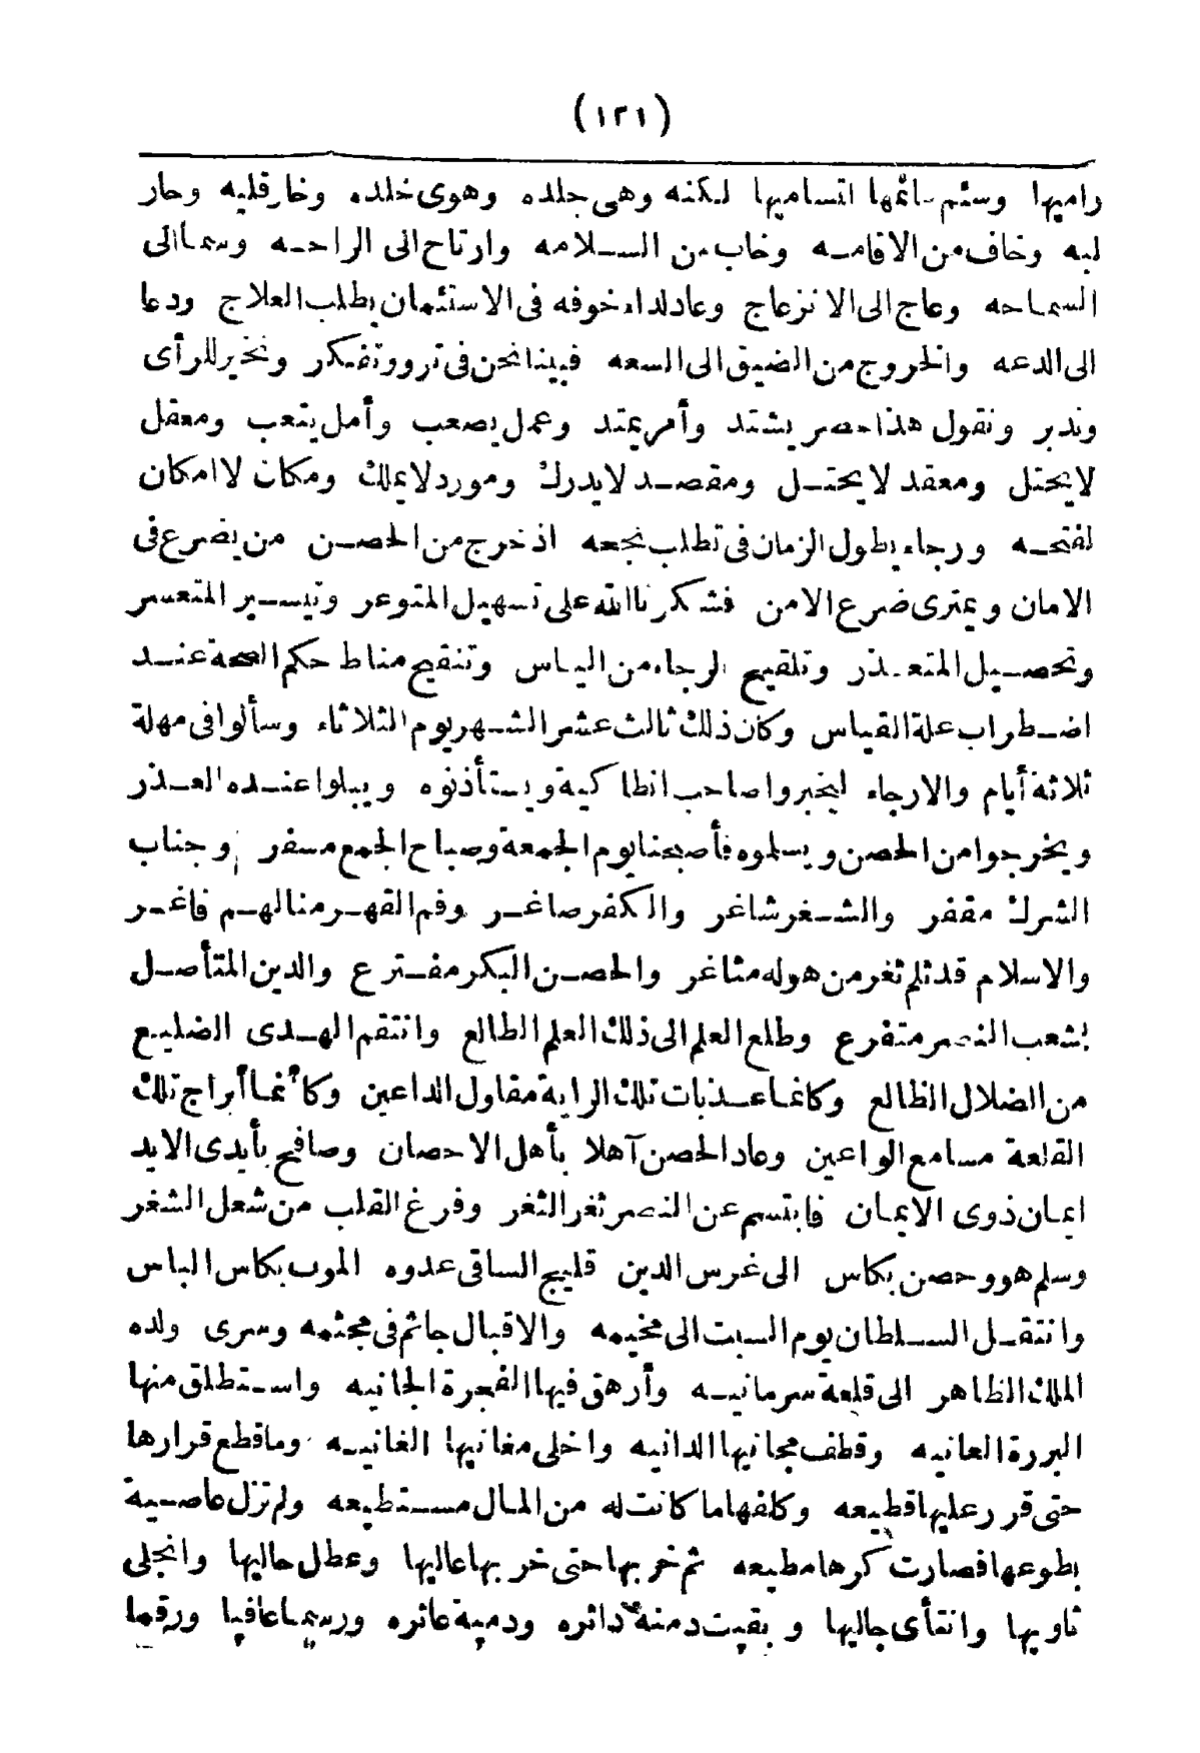 (١٢١)
راميها وسئم سائمها اتساميها لكنه وهى جلده وهوى خلده وخار قلبه وحار
لبه وخاف من الاقامه وخاب من السلامه وارتاح الى الراحه وسما الى
السماحه وعاج الى الانزعاج وعاد لداء خوفه فى الاستئمان بطلب العلاج ودعا
الى الدعه والخروج من الضيق الى السعه فبينا نحن فى ترو وتفكر وتخير للرأى
وتدبر ونقول هذا حصر يشتد وأمر يمتد وعمل يصعب وأمل يتعب ومعقل
لا يختل ومعقد لا يحتل ومقصد لا يدرك ومورد لا يملك ومكان لا امكان
لفتحه ورجاء يطول الزمان فى تطلب نجحه اذ خرج من الحصن من يضرع فى
الامان ويمترى ضرع الامن فشكرنا الله على تسهيل المتوعر وتيسير المتعسر
وتحصيل المتعذر وتلقيح الرجاء من الياس وتنقيح مناط حكم الصحة عند
اضطراب علة القياس وكان ذلك ثالث عشر الشهر يوم الثلاثاء وسألوا فى مهلة
ثلاثة أيام والارجاء ليخبروا صاحب انطاكية ويستأذنوه ويبلوا عنده العذر
ويخرجوا من الحصن ويسلموه فأصبحنا يوم الجمعة وصباح الجمع مسفر وجناب
الشرك مقفر والشغر شاغر والكفر صاغر وفم القهر منا لهم فاغر
والاسلام قد ثلم ثغر من هو له مثاغر والحصن البكر مفترع والدين المتأصل
بشعب النصر متفرع وطلع العلم الى ذلك العلم الطالع وانتقم الهدى الضليع
من الضلال الظالع وكانما عذبات تلك الراية مقاول الداعين وكأنما أبراج تلك
القلعة مسامع الواعين وعاد الحصن آهلا بأهل الاحصان وصافح بأيدى الايد
ايمان ذوى الايمان فابتسم عن النصر ثغر الثغر وفرغ القلب من شعل الشغر
وسلم هو وحصن بكاس الى غرس الدين قليج الساقى عدوه الموت بكاس الباس
وانتقل السلطان يوم السبت الى مخيمه والاقبال جاثم فى مجثمه وسرى ولده
الملك الظاهر الى قلعة سرمانيه وأرهق فيها الفجرة الجانيه واستطلق منها
البررة العانيه وقطف مجانيها الدانيه واخلى مغانيها الغانيه وما قطع قرارها
حتى قرر عليها قطيعه وكلفها ما كانت له من المال مستطيعه ولم تزل عاصية
بطوعها فصارت كرها مطيعه ثم خربها حتى خر بها عاليها وعطل حاليها وانجلى
ثاويها وانتأى جاليها وبقيت دمنة داثره ودمية عاثره ورسما عافيا ورقما